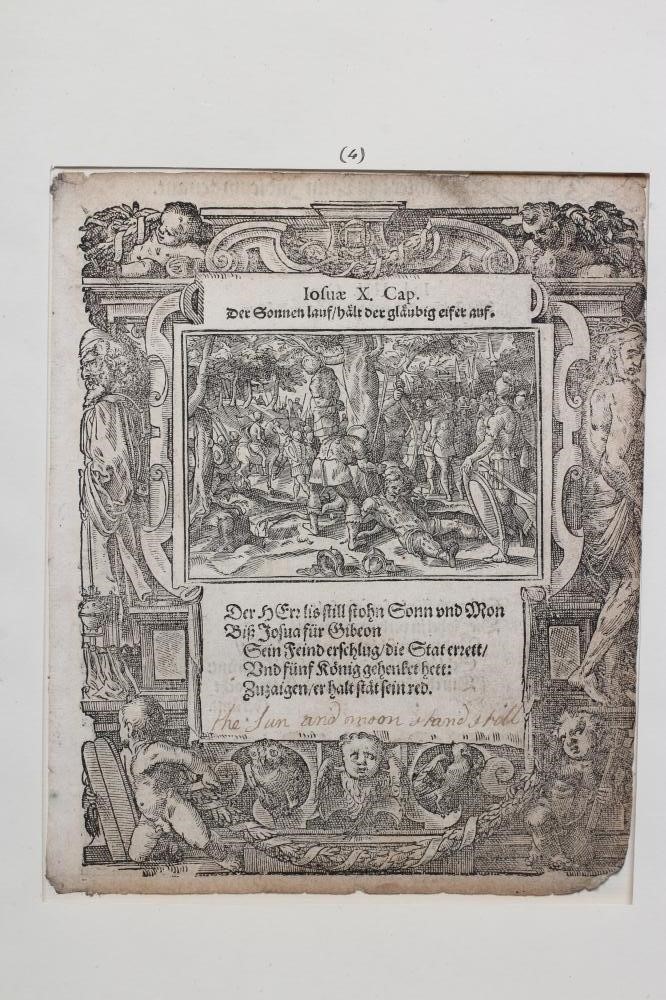 (4)
Iosuæ X. Cap.
Der Sonnen lauf/hält der gläubig eifer auf.
Der HErr lis still stohn Sonn vnd Mon
Biß Josua für Gibeon
Sein Feind erschlug/die Stat errett/
Vnd fünf König gehenket hett:
Zuzaigen/er halt stät sein red.
the Sun and moon stand still